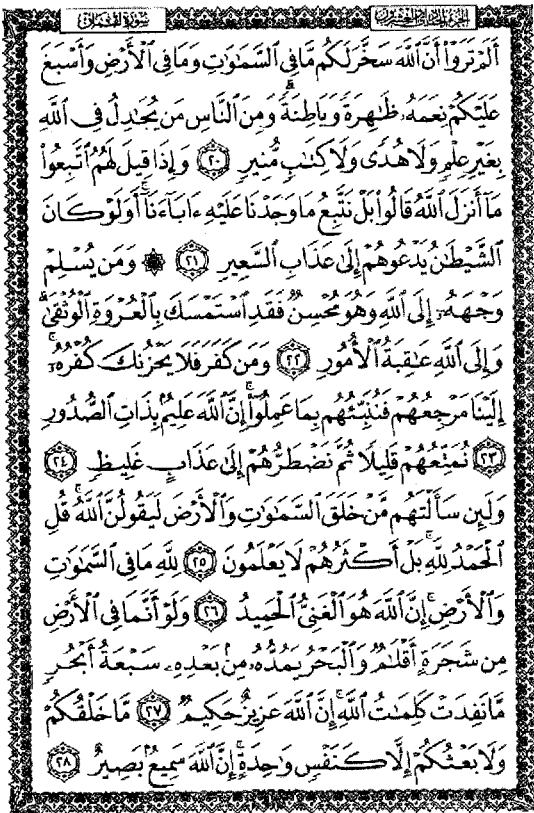 سُورَةُ لُقْمَانَ الجُزْءُ الحَادِي وَالعِشْرُونَ
أَلَمْ تَرَوْا۟ أَنَّ ٱللَّهَ سَخَّرَ لَكُم مَّا فِى ٱلسَّمَٰوَٰتِ وَمَا فِى ٱلْأَرْضِ وَأَسْبَغَ
عَلَيْكُمْ نِعَمَهُۥ ظَٰهِرَةً وَبَاطِنَةً ۗ وَمِنَ ٱلنَّاسِ مَن يُجَٰدِلُ فِى ٱللَّهِ
بِغَيْرِ عِلْمٍ وَلَا هُدًى وَلَا كِتَٰبٍ مُّنِيرٍ ٢٠ وَإِذَا قِيلَ لَهُمُ ٱتَّبِعُوا۟
مَآ أَنزَلَ ٱللَّهُ قَالُوا۟ بَلْ نَتَّبِعُ مَا وَجَدْنَا عَلَيْهِ ءَابَآءَنَآ ۚ أَوَلَوْ كَانَ
ٱلشَّيْطَٰنُ يَدْعُوهُمْ إِلَىٰ عَذَابِ ٱلسَّعِيرِ ٢١ ۞ وَمَن يُسْلِمْ
وَجْهَهُۥٓ إِلَى ٱللَّهِ وَهُوَ مُحْسِنٌ فَقَدِ ٱسْتَمْسَكَ بِٱلْعُرْوَةِ ٱلْوُثْقَىٰ ۗ
وَإِلَى ٱللَّهِ عَٰقِبَةُ ٱلْأُمُورِ ٢٢ وَمَن كَفَرَ فَلَا يَحْزُنكَ كُفْرُهُۥٓ ۚ
إِلَيْنَا مَرْجِعُهُمْ فَنُنَبِّئُهُم بِمَا عَمِلُوٓا۟ ۚ إِنَّ ٱللَّهَ عَلِيمٌۢ بِذَاتِ ٱلصُّدُورِ
٢٣ نُمَتِّعُهُمْ قَلِيلًا ثُمَّ نَضْطَرُّهُمْ إِلَىٰ عَذَابٍ غَلِيظٍ ٢٤
وَلَئِن سَأَلْتَهُم مَّنْ خَلَقَ ٱلسَّمَٰوَٰتِ وَٱلْأَرْضَ لَيَقُولُنَّ ٱللَّهُ ۚ قُلِ
ٱلْحَمْدُ لِلَّهِ ۚ بَلْ أَكْثَرُهُمْ لَا يَعْلَمُونَ ٢٥ لِلَّهِ مَا فِى ٱلسَّمَٰوَٰتِ
وَٱلْأَرْضِ ۚ إِنَّ ٱللَّهَ هُوَ ٱلْغَنِىُّ ٱلْحَمِيدُ ٢٦ وَلَوْ أَنَّمَا فِى ٱلْأَرْضِ
مِن شَجَرَةٍ أَقْلَٰمٌ وَٱلْبَحْرُ يَمُدُّهُۥ مِنۢ بَعْدِهِۦ سَبْعَةُ أَبْحُرٍ
مَّا نَفِدَتْ كَلِمَٰتُ ٱللَّهِ ۗ إِنَّ ٱللَّهَ عَزِيزٌ حَكِيمٌ ٢٧ مَّا خَلْقُكُمْ
وَلَا بَعْثُكُمْ إِلَّا كَنَفْسٍ وَٰحِدَةٍ ۗ إِنَّ ٱللَّهَ سَمِيعٌۢ بَصِيرٌ ٢٨